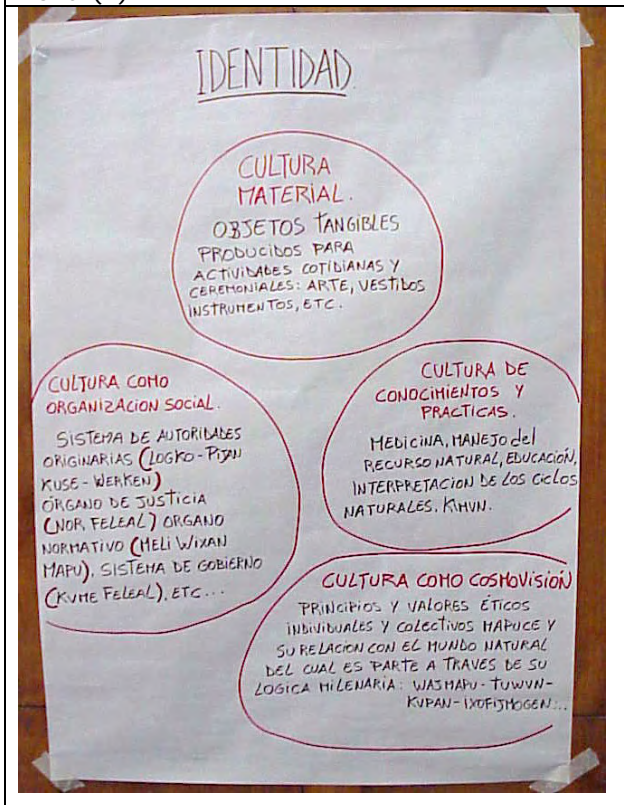 IDENTIDAD
CULTURA
MATERIAL.
OBJETOS TANGIBLES
PRODUCIDOS PARA
ACTIVIDADES COTIDIANAS Y
CEREMONIALES: ARTE, VESTIDOS
INSTRUMENTOS, ETC.
CULTURA COMO
ORGANIZACION SOCIAL.
SISTEMA DE AUTORIDADES
ORIGINARIAS (LOGKO-PIJAN
KUSE-WERKEN)
ÓRGANO DE JUSTICIA
(NOR FELEAL) ORGANO
NORMATIVO (MELI WIXAN
MAPU), SISTEMA DE GOBIERNO
(KVME FELEAL), ETC...
CULTURA DE
CONOCIMIENTOS Y
PRACTICAS.
MEDICINA, MANEJO del
RECURSO NATURAL, EDUCACIÓN,
INTERPRETACION DE LOS CICLOS
NATURALES, KIMVN.
CULTURA COMO COSMOVISIÓN
PRINCIPIOS Y VALORES ÉTICOS
INDIVIDUALES Y COLECTIVOS MAPUCE Y
SU RELACION CON EL MUNDO NATURAL
DEL CUAL ES PARTE A TRAVES DE SU
LOGICA MILENARIA: WAJMAPU-TUWVN-
KVPAN-IXOFIJMOGEN...